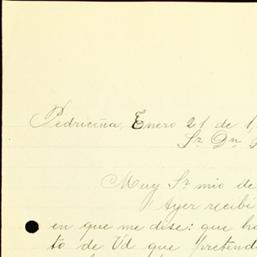 Pedriceña, Enero 21 de 1
Sr. Dn.
Muy Sr. mio de
Ayer recibi
en que me dise: que ha
to de Vd que pretend